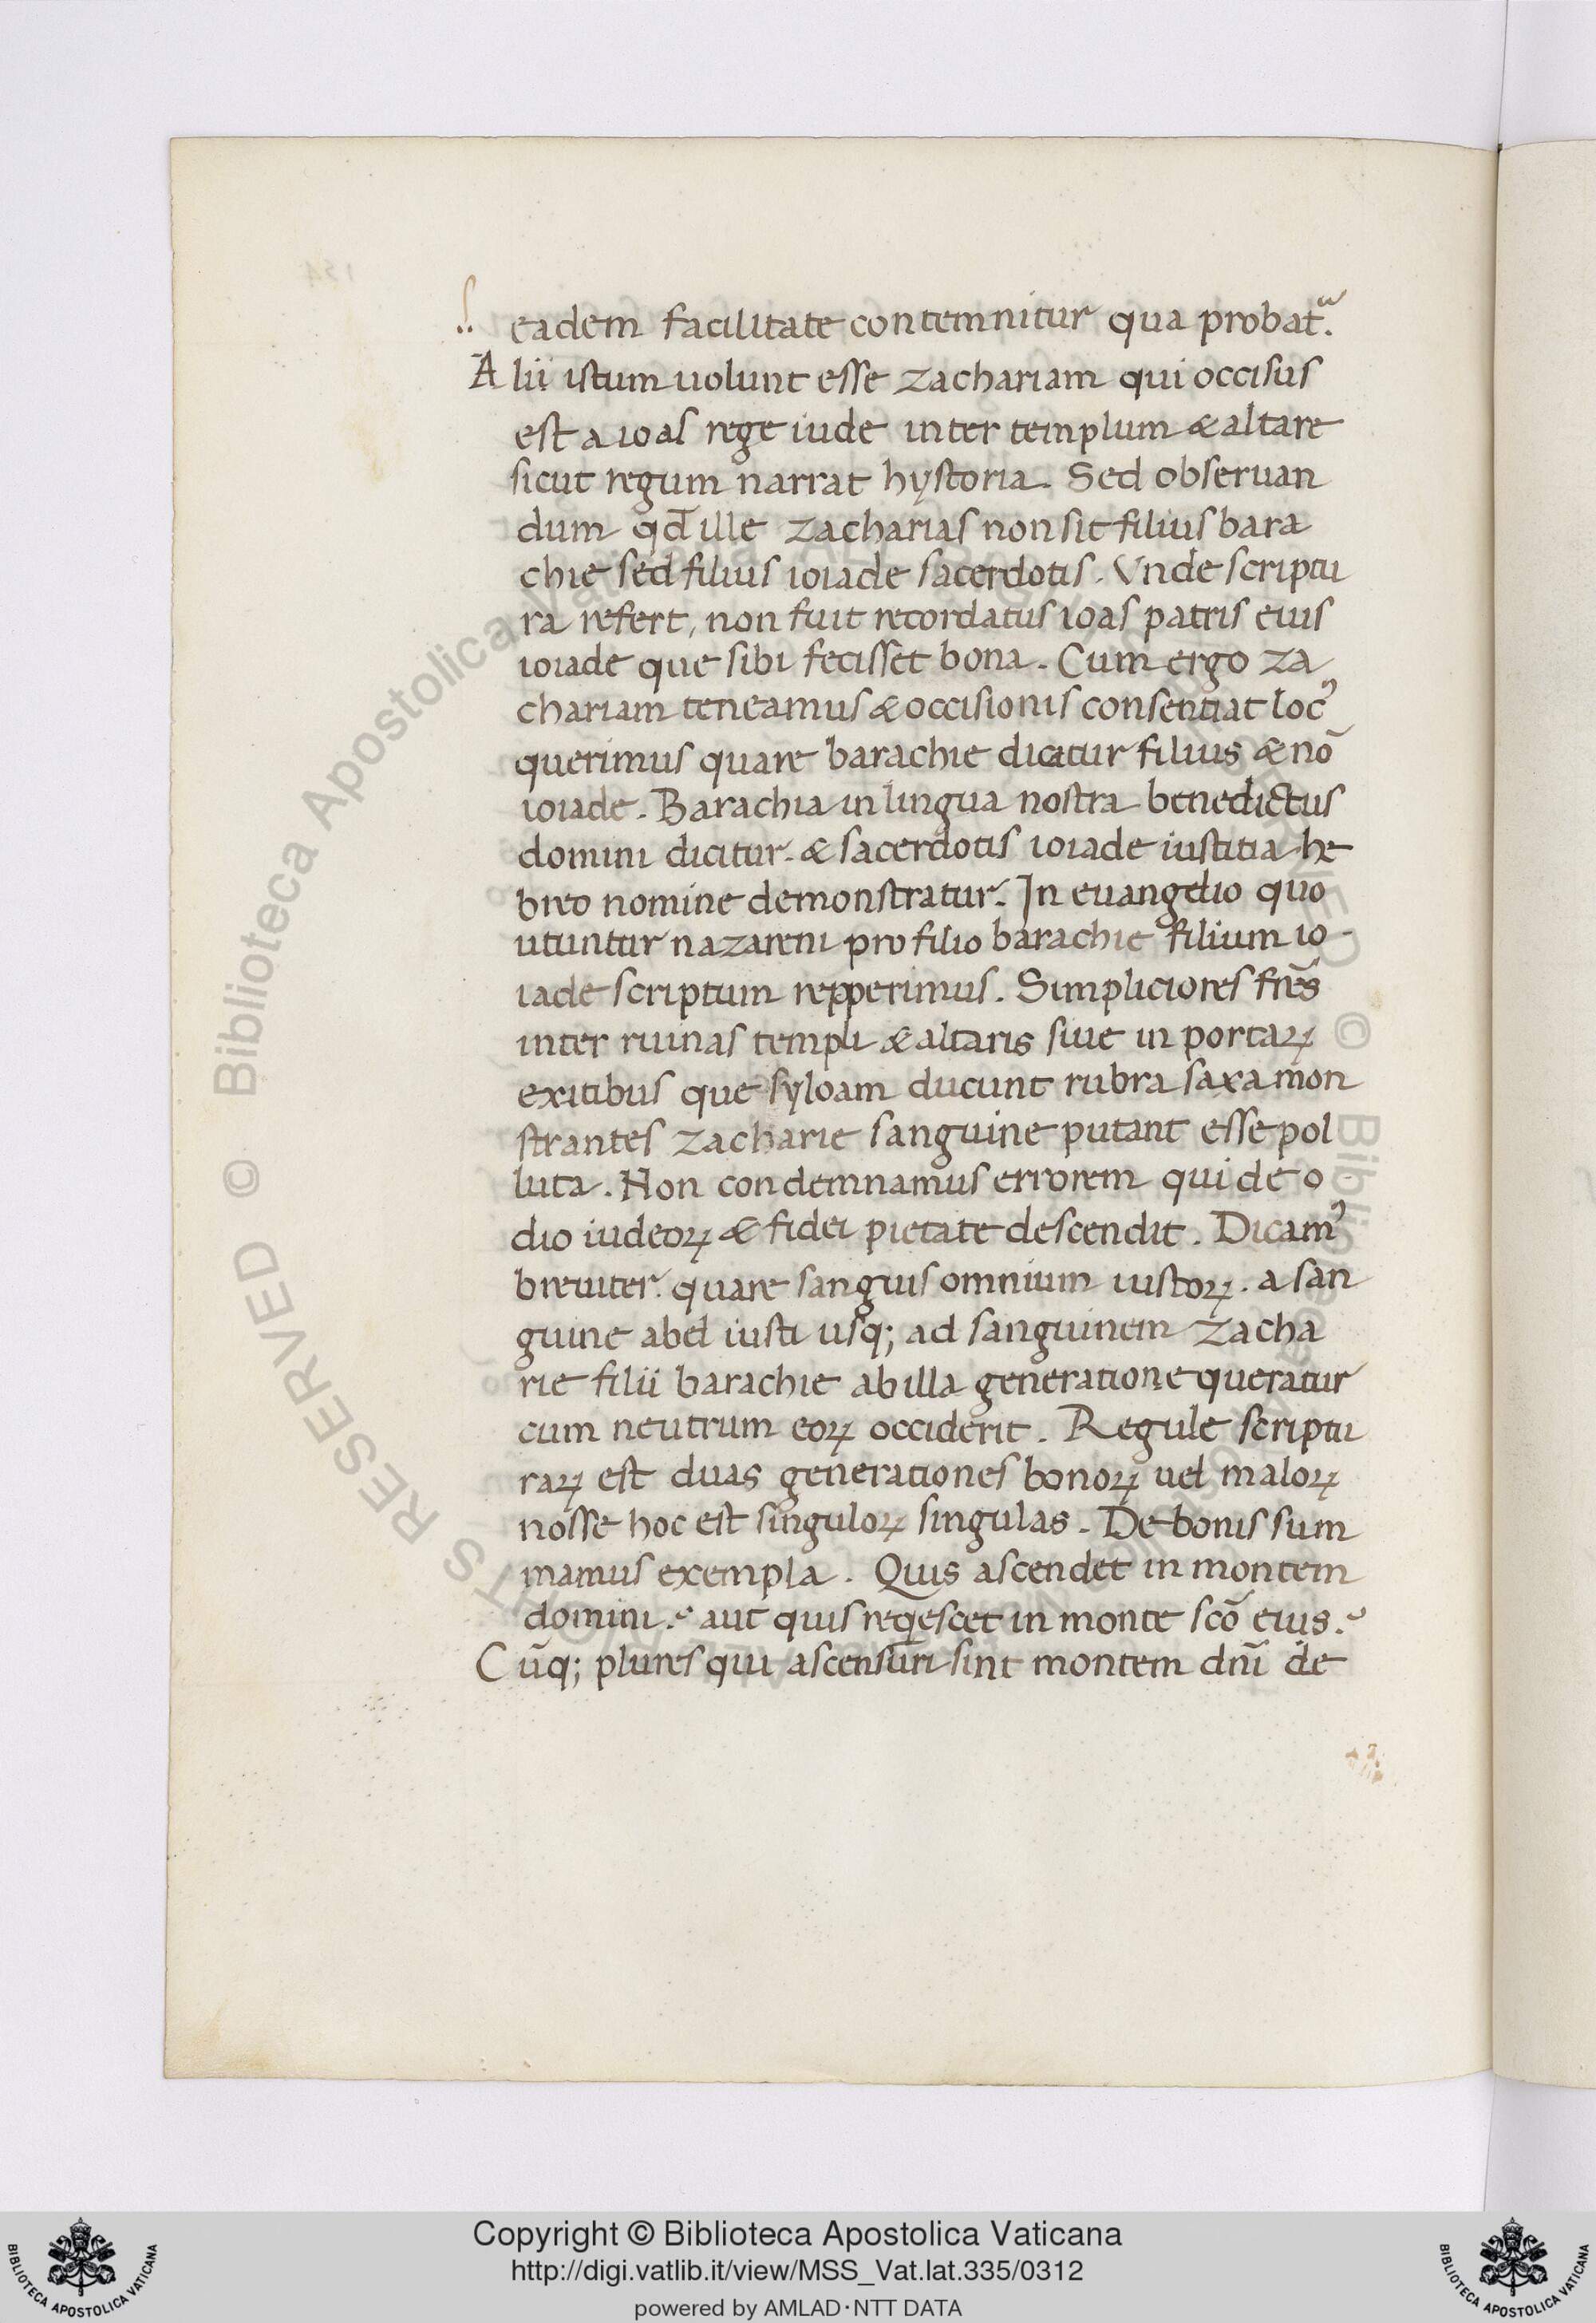 eadem facilitate contemnitur qua probat᷑.
Alii istum uolunt esse zachariam qui occisus
est a ioas rege iude inter templum & altare
sicut regum narrat hystoria. Sed obseruan
dum qđ ille zacharias non sit filius bara
chie sed filius ioiade sacerdotis. Vnde scriptu
ra refert, non fuit recordatus ioas patris eius
ioiade que sibi fecisset bona. Cum ergo za
chariam teneamus & occisionis consentiat locꝰ
querimus quare barachie dicatur filius & nō
ioiade. Barachia in lingua nostra benedictus
domini dicitur. & sacerdotis ioiade iustitia he
breo nomine demonstratur. In euangelio quo
utuntur nazareni pro filio barachie filium io
iade scriptum repperimus. Simpliciores fr̄es
inter ruinas templi & altaris siue in portaꝝ
exitibus que syloam ducunt rubra saxa mon
strantes zacharie sanguine putant esse pol
luta. Non condemnamus errorem qui de o
dio iudeoꝝ & fidei pietate descendit. Dicamꝰ
breuiter. quare sanguis omnium iustoꝝ. a san
guine abel iusti usq; ad sanguinem zacha
rie filii barachie ab illa generatione queratur
cum neutrum eoꝝ occiderit. Regule scriptu
raꝝ est duas generationes bonoꝝ uel maloꝝ
nosse hoc est singuloꝝ singulas. De bonis sum
mamus exempla. Quis ascendet in montem
domini.? aut quis reqescet in monte scō eius.?
Cūq; plures qui ascensuri sint montem dn̄i de
Copyright © Biblioteca Apostolica Vaticana
http://digi.vatlib.it/view/MSS_Vat.lat.335/0312
powered by AMLAD·NTT DATA